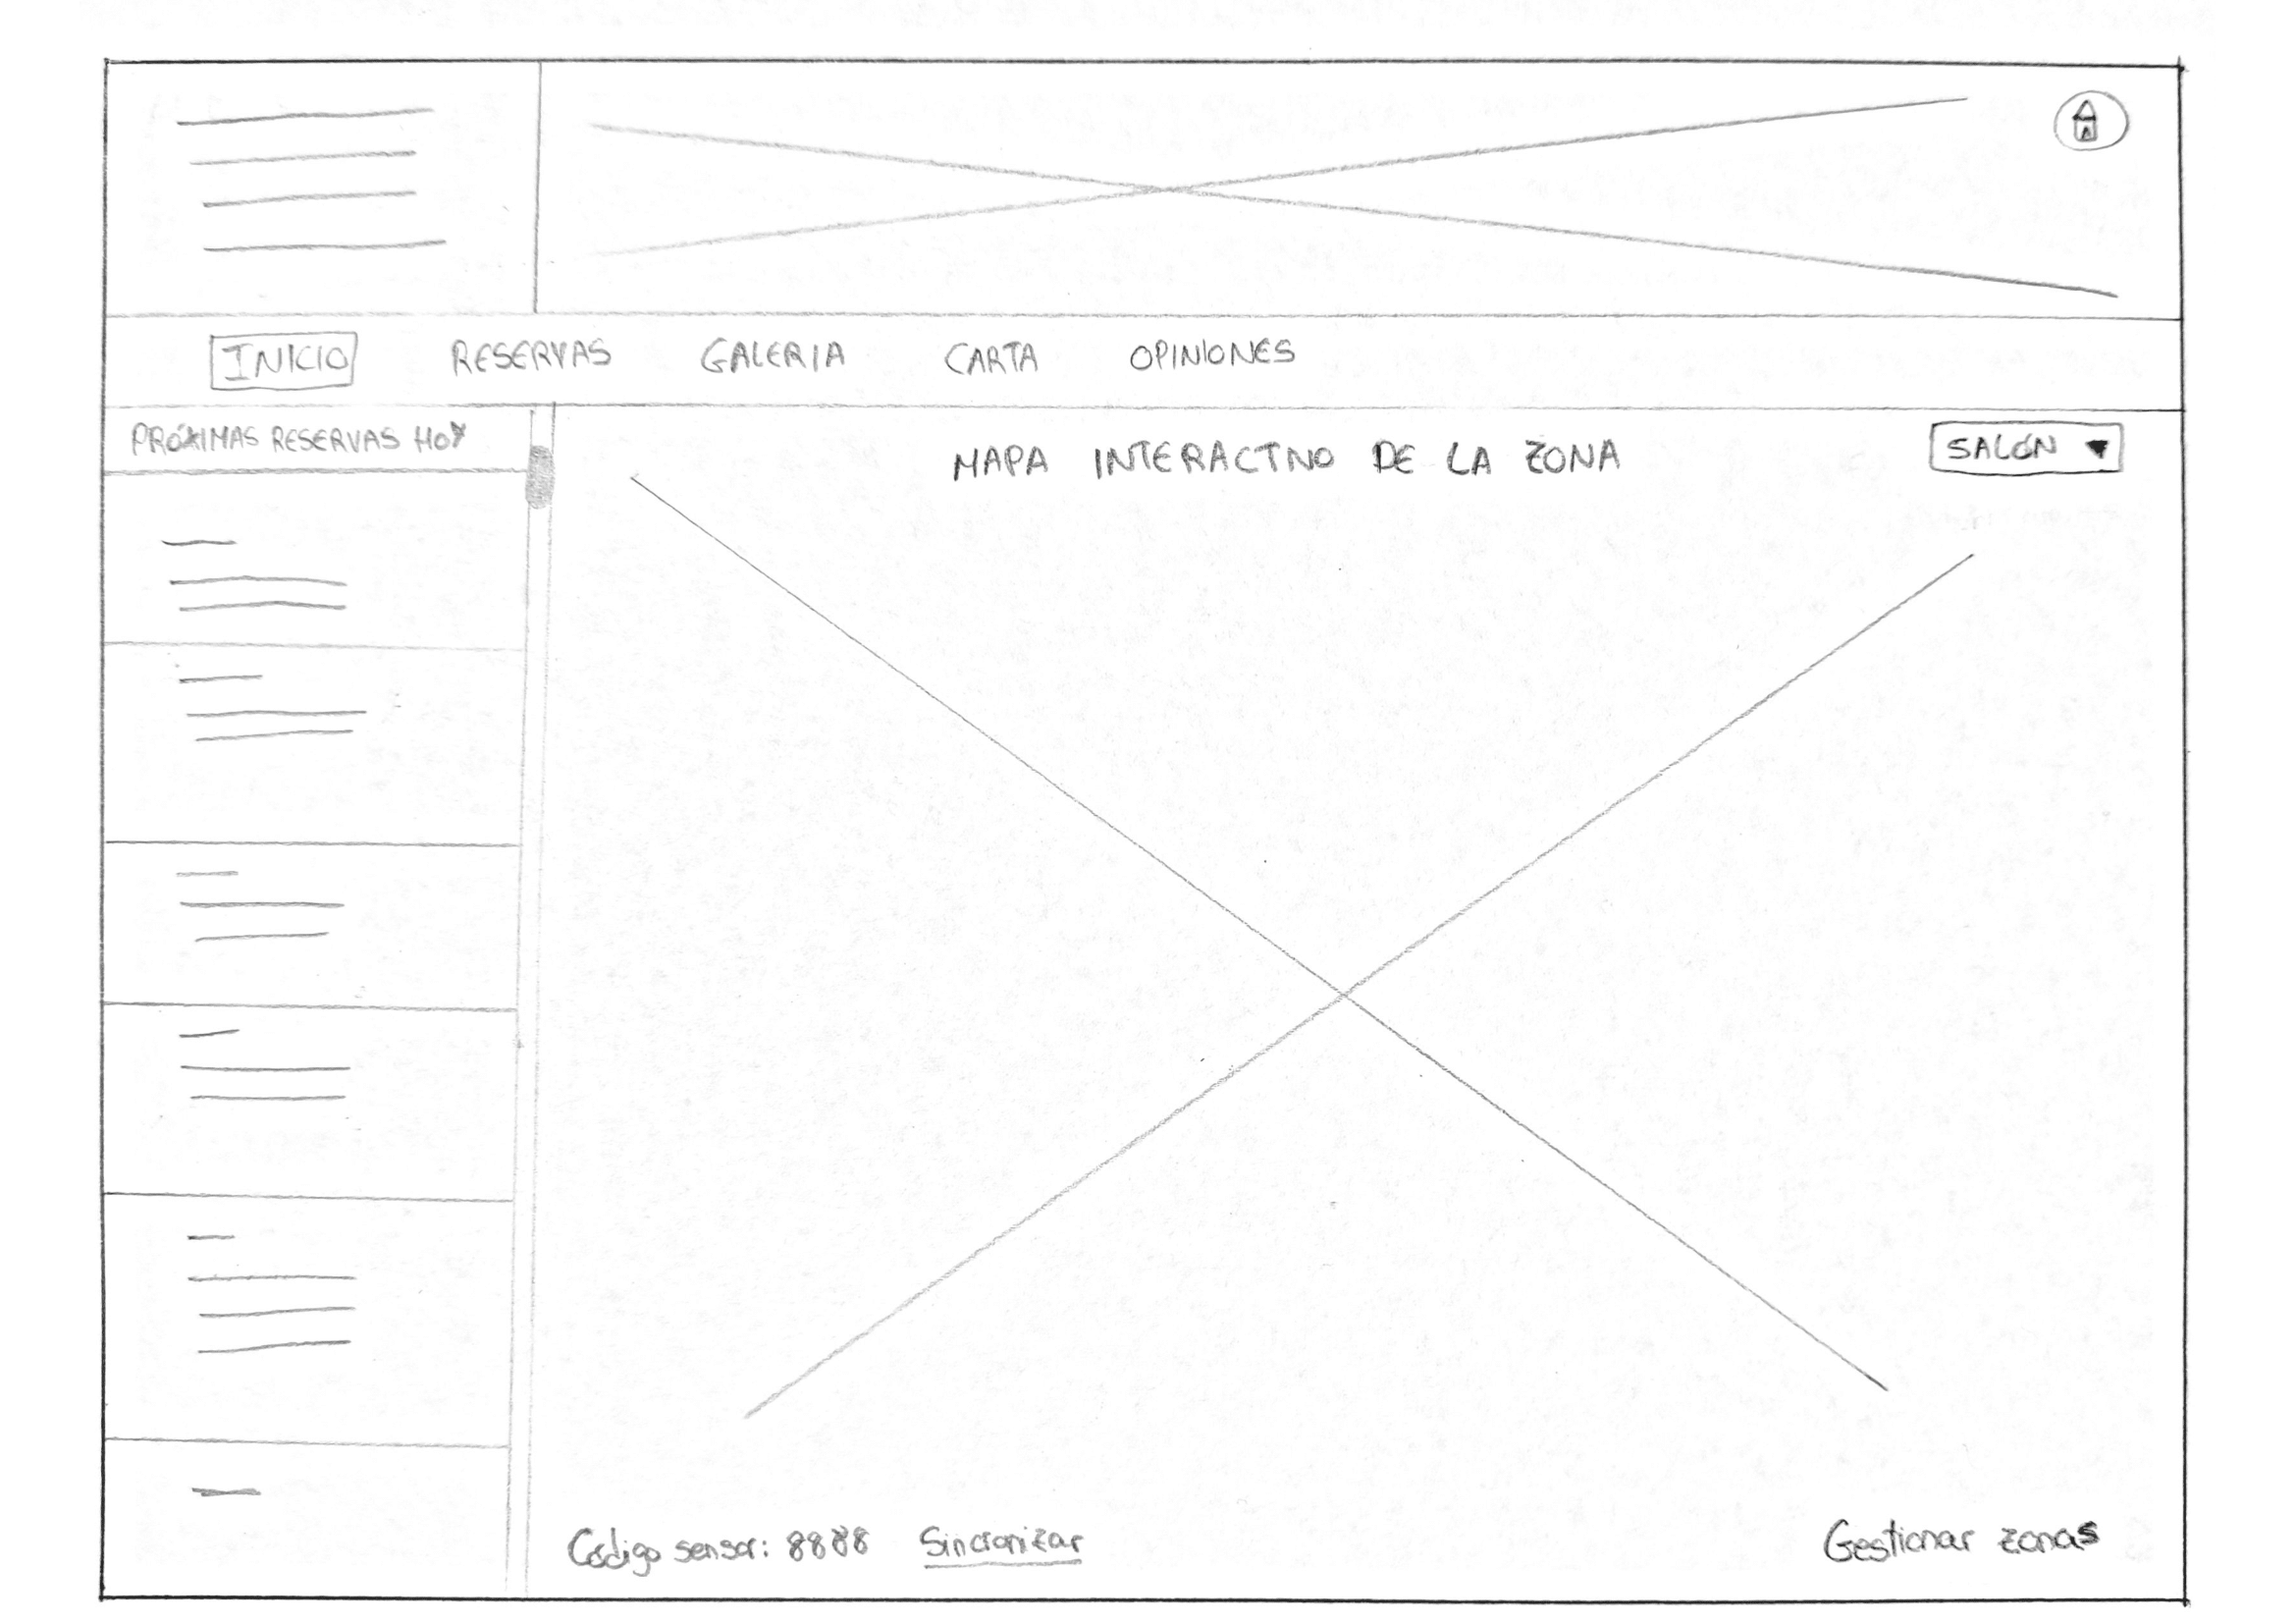 INICIO RESERVAS GALERIA CARTA OPINIONES
PRÓXIMAS RESERVAS HOY
MAPA INTERACTIVO DE LA ZONA
SALÓN
Código sensor: 8888 Sincronizar
Gestionar zonas